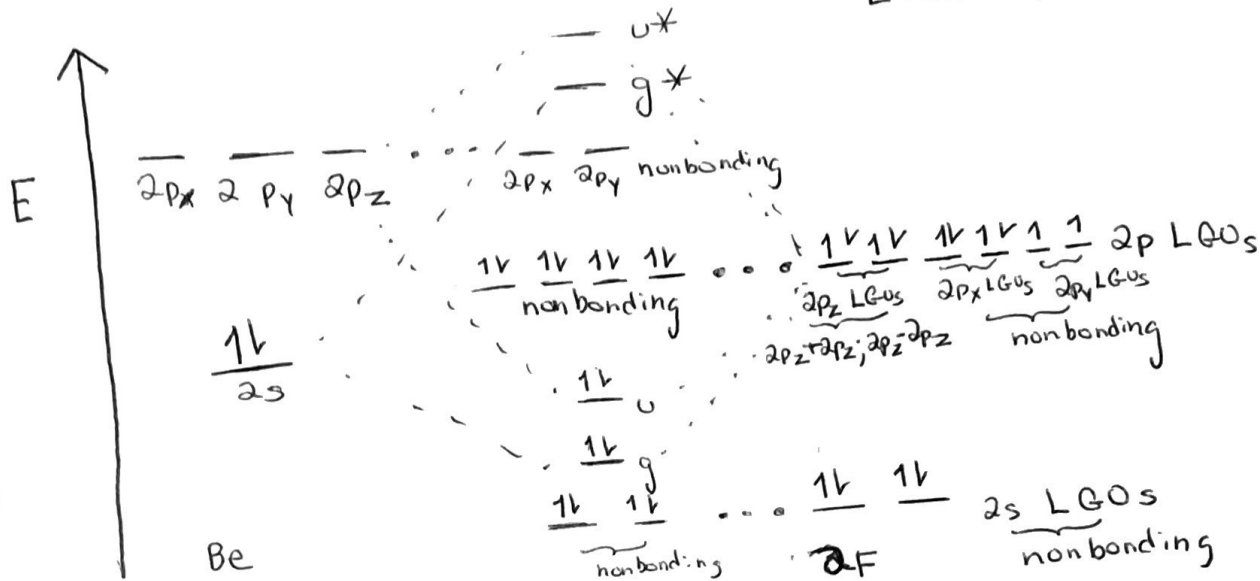 u*
g*
E
2px 2 py 2pz
2px 2py nonbonding
1l 1l 1l 1l
nonbonding
1l 1l 1l 1l 1 1 2p LGOs
2pz LGOs 2px LGOs 2py LGOs
2pz+2pz; 2pz-2pz nonbonding
1l
2s
1l u
1l g
1l 1l 1l 1l 2s LGOs
Be nonbonding 2F nonbonding